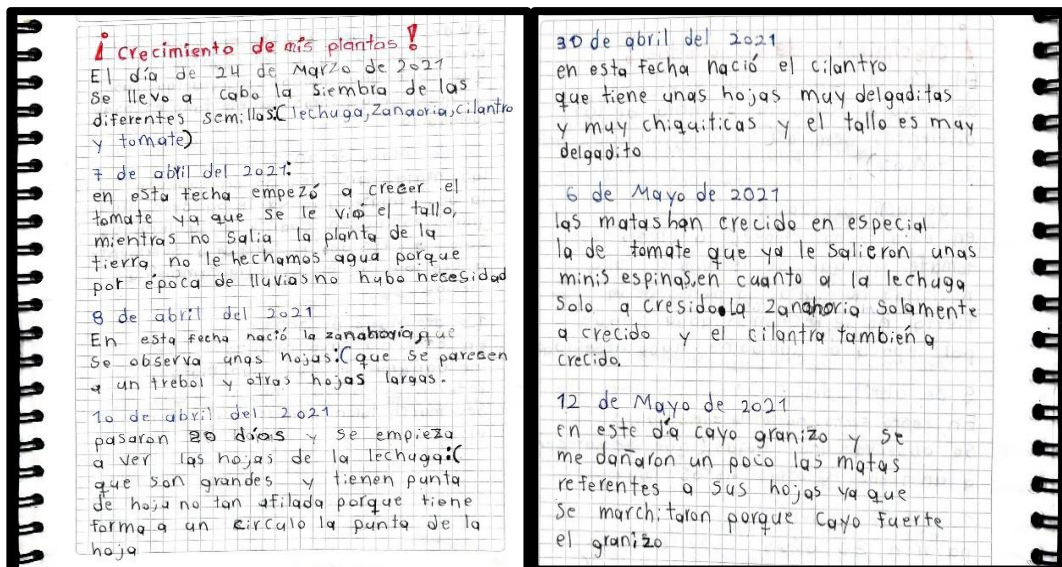 ¡ crecimiento de mis plantas !
El día de 24 de Marzo de 2021
se llevo a cabo la siembra de las
diferentes semillas:(lechuga,zanaoria,cilantro
y tomate)
7 de abril del 2021:
en esta fecha empezó a crecer el
tomate ya que se le vio el tallo,
mientras no salia la planta de la
tierra no le hechamos agua porque
por época de lluvias no hubo necesidad
8 de abril del 2021
En esta fecha nació la zanahoria,que
se observa unas hojas:(que se parecen
a un trebol y otras hojas largas.
10 de abril del 2021
pasaron 20 días y se empieza
a ver las hojas de la lechuga:(
que son grandes y tienen punta
de hoja no tan afilada porque tiene
forma a un circulo la punta de la
hoja
30 de abril del 2021
en esta fecha nació el cilantro
que tiene unas hojas muy delgaditas
y muy chiquiticas y el tallo es muy
delgadito
6 de Mayo de 2021
las matas han crecido en especial
la de tomate que ya le salieron unas
minis espinas,en cuanto a la lechuga
solo a cresido.la zanahoria solamente
a crecido y el cilantro también a
crecido.
12 de Mayo de 2021
en este día cayo granizo y se
me dañaron un poco las matas
referentes a sus hojas ya que
se marchitaron porque cayo fuerte
el granizo